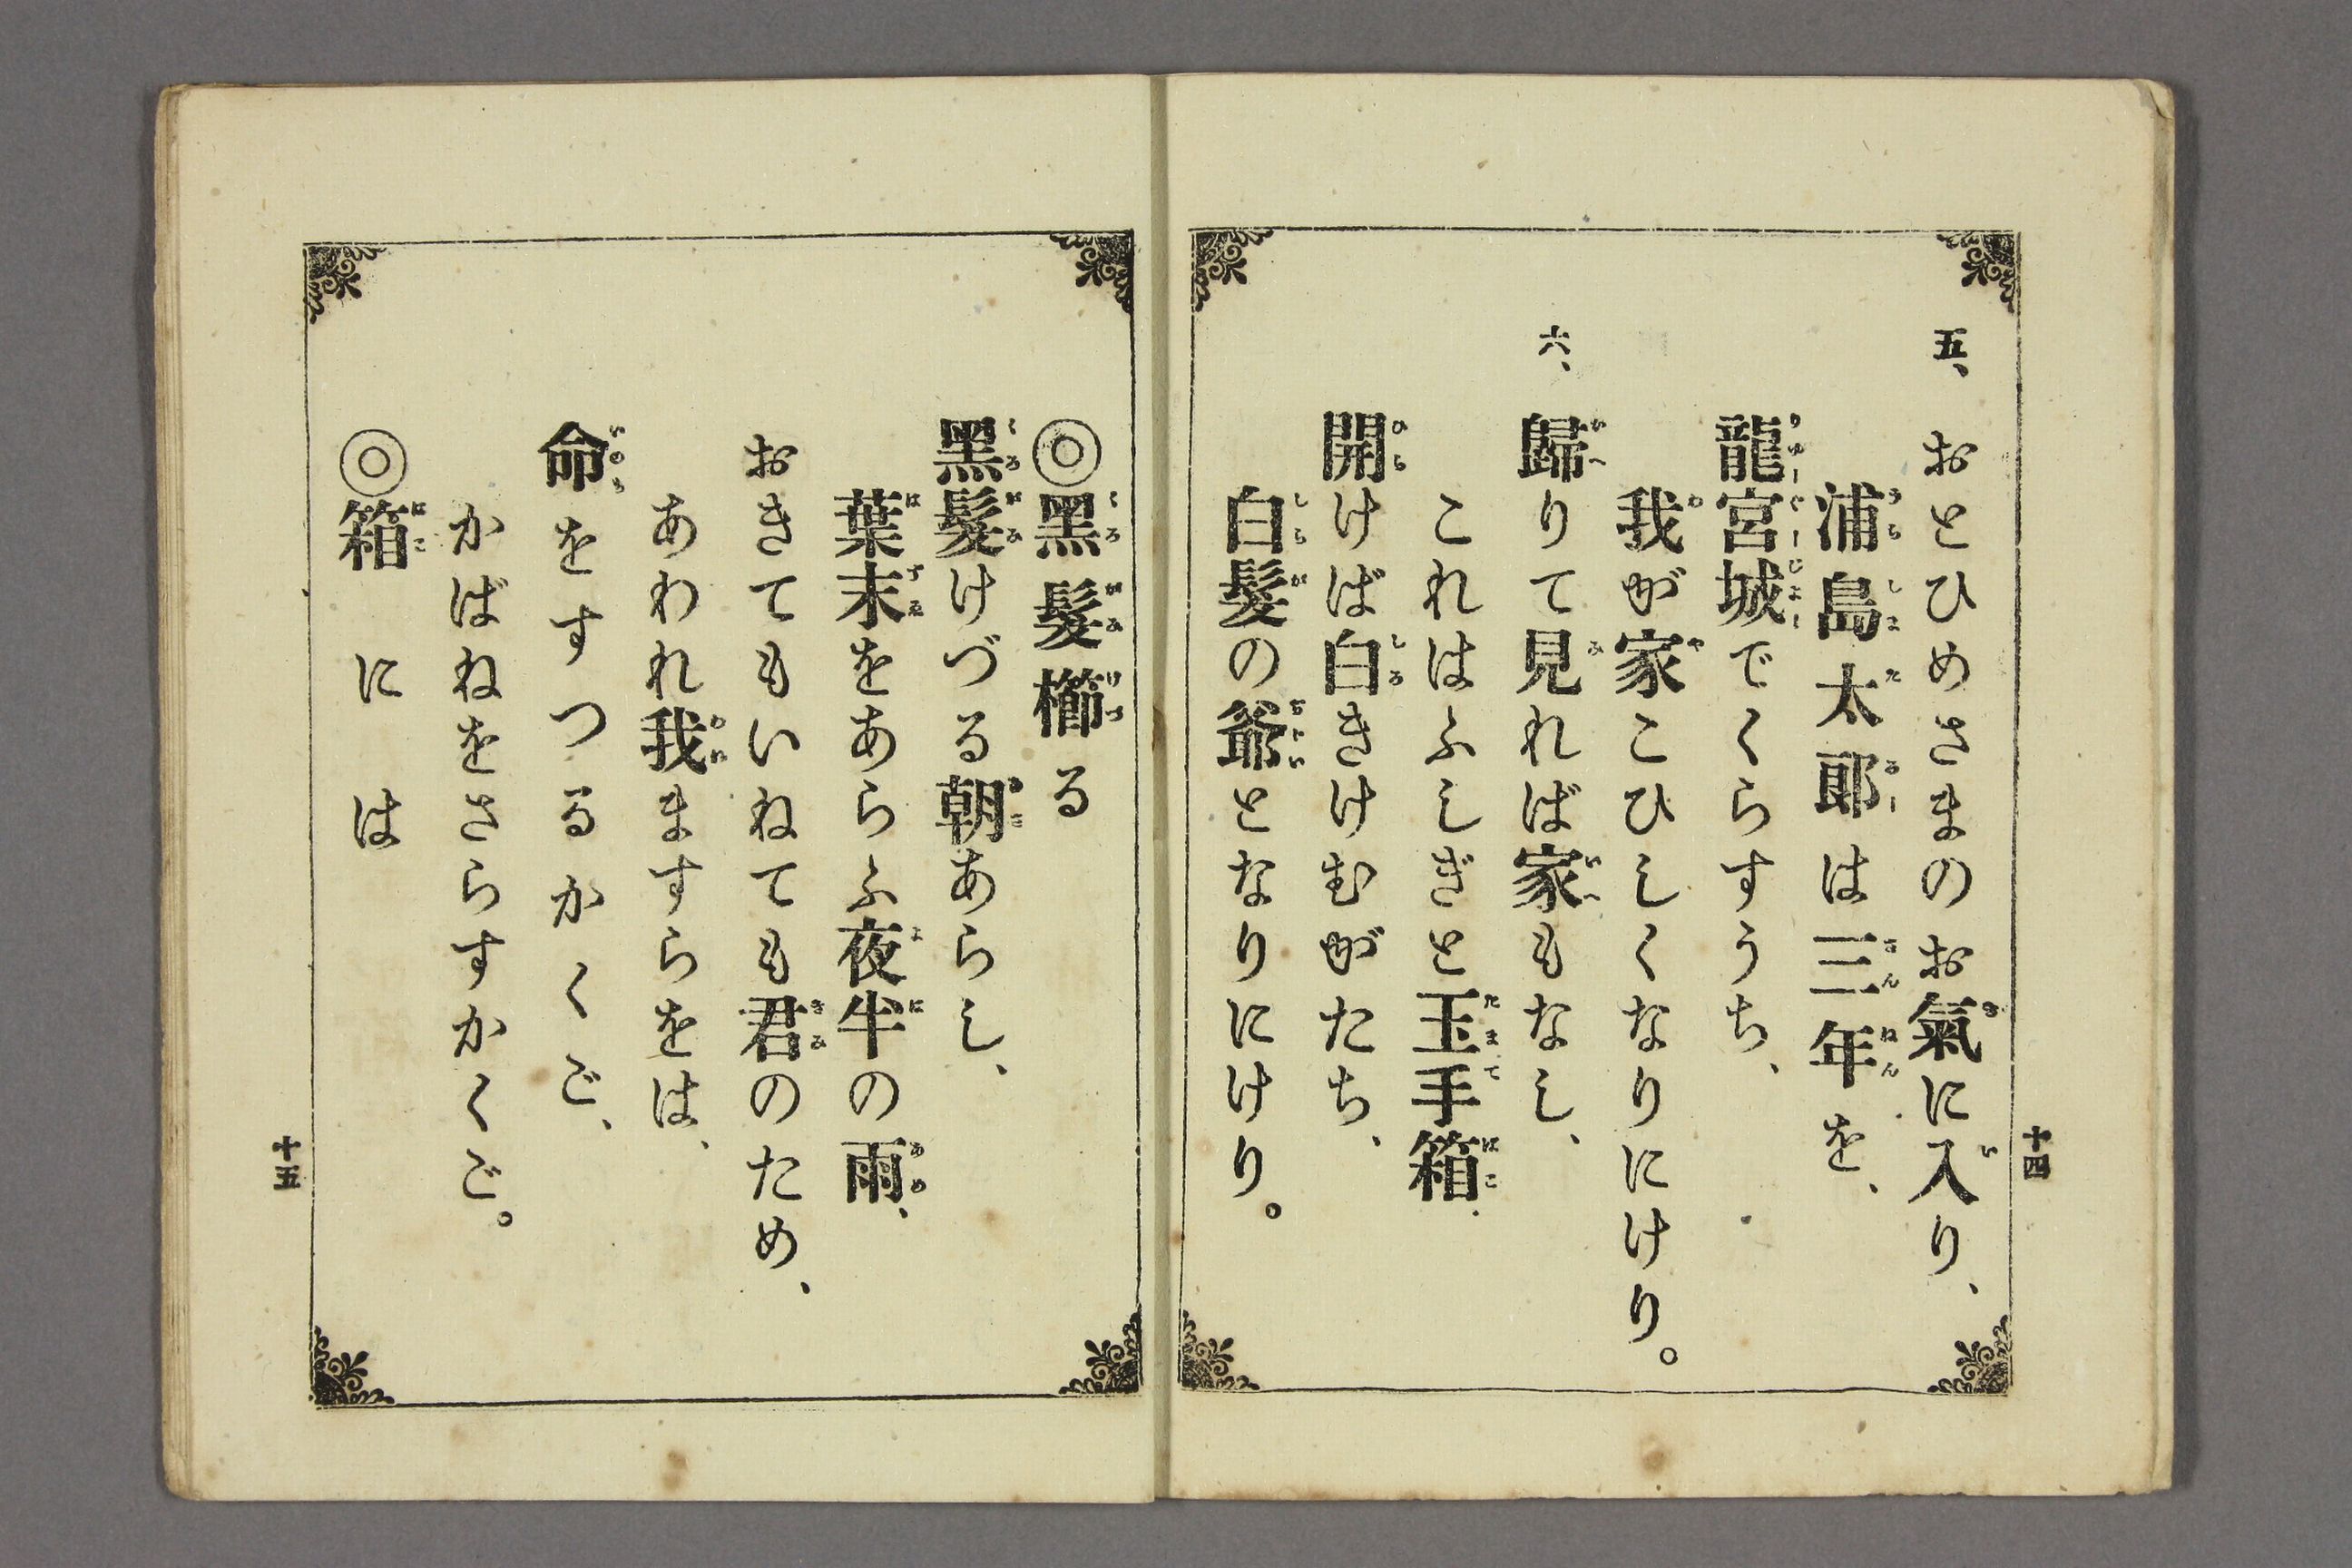 五、おとひめさまのお氣に入り、
浦島太郎は三年を、
龍宮城でくらすうち、
我が家こひしくなりにけり。
六、歸りて見れば家もなし、
これはふしぎと玉手箱、
開けば白きけむがたち、
白髮の爺となりにけり。
十四
◎黑髮櫛る
黑髮けづる朝あらし、
葉末をあらふ夜半の雨、
おきてもいねても君のため、
あわれ我ますらをは、
命をすつるかくご、
かばねをさらすかくご。
◎箱には
十五